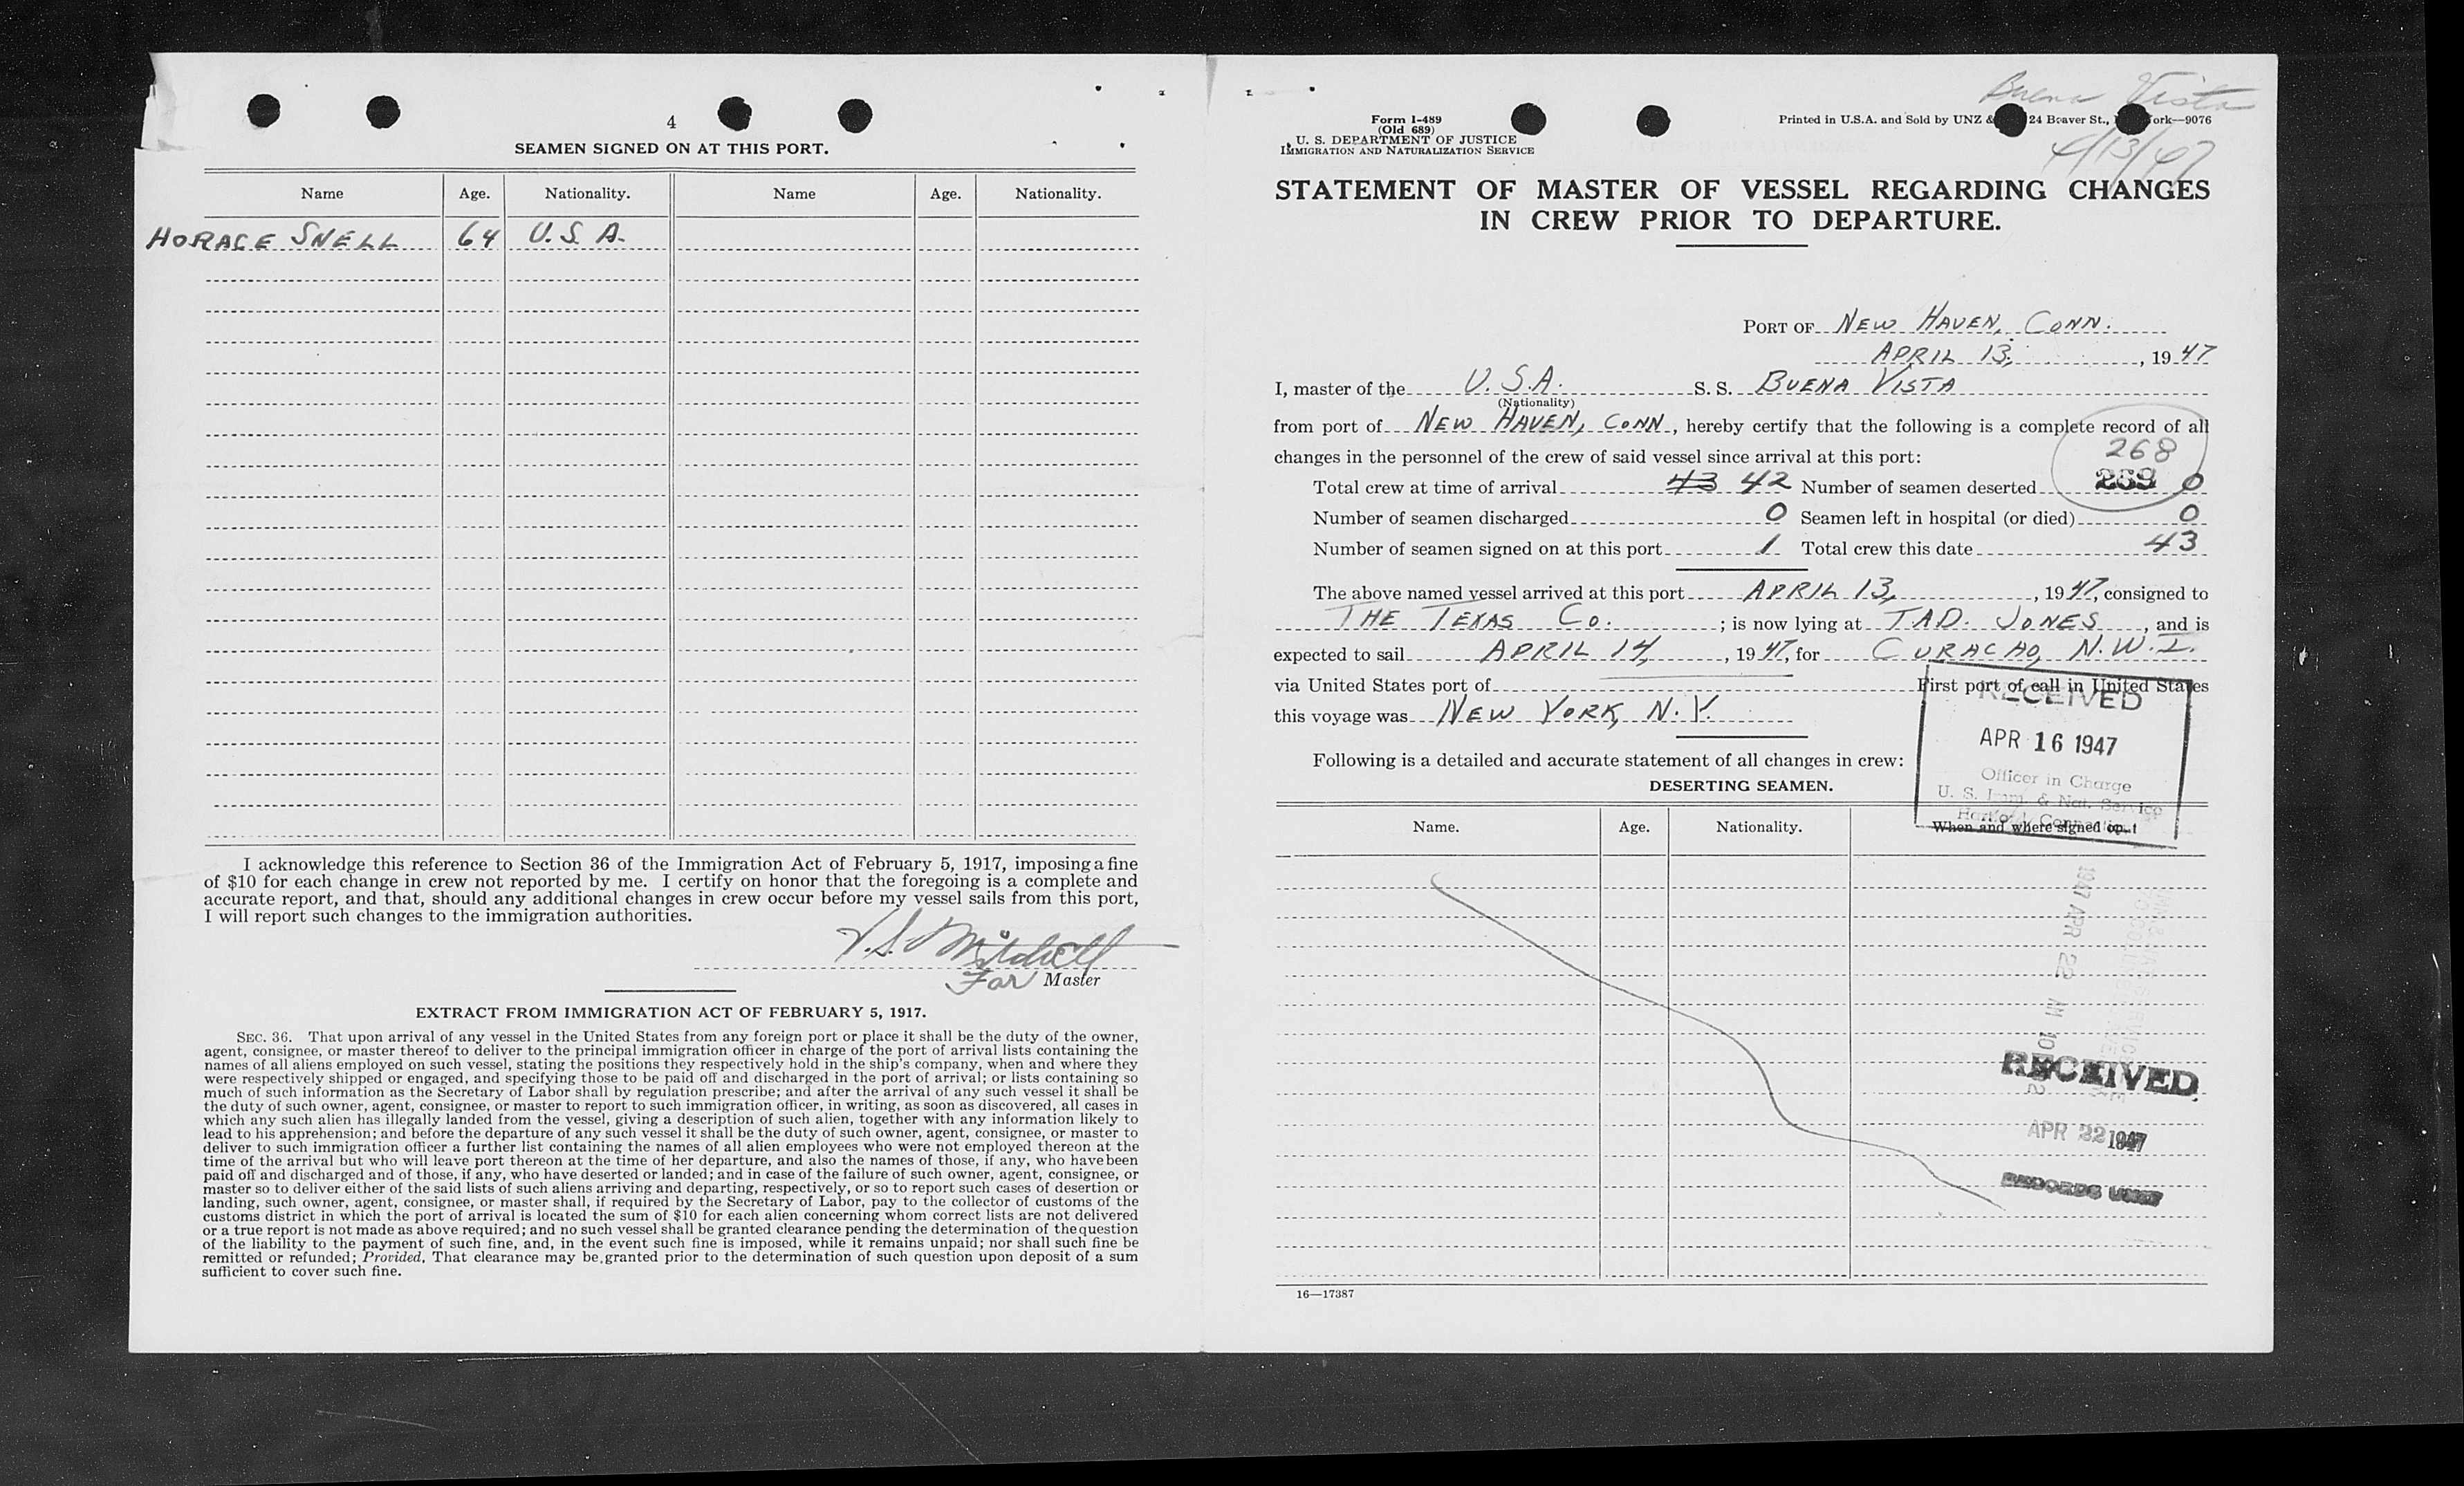 4
SEAMEN SIGNED ON AT THIS PORT.
Name Age. Nationality. Name Age. Nationality.
HORACE SNELL 64 U.S.A.
I acknowledge this reference to Section 36 of the Immigration Act of February 5, 1917, imposing a fine
of $10 for each change in crew not reported by me. I certify on honor that the foregoing is a complete and
accurate report, and that, should any additional changes in crew occur before my vessel sails from this port,
I will report such changes to the immigration authorities.
Mitchell
For Master
EXTRACT FROM IMMIGRATION ACT OF FEBRUARY 5, 1917.
SEC. 36. That upon arrival of any vessel in the United States from any foreign port or place it shall be the duty of the owner,
agent, consignee, or master thereof to deliver to the principal immigration officer in charge of the port of arrival lists containing the
names of all aliens employed on such vessel, stating the positions they respectively hold in the ship's company, when and where they
were respectively shipped or engaged, and specifying those to be paid off and discharged in the port of arrival; or lists containing so
much of such information as the Secretary of Labor shall by regulation prescribe; and after the arrival of any such vessel it shall be
the duty of such owner, agent, consignee, or master to report to such immigration officer, in writing, as soon as discovered, all cases in
which any such alien has illegally landed from the vessel, giving a description of such alien, together with any information likely to
lead to his apprehension; and before the departure of any such vessel it shall be the duty of such owner, agent, consignee, or master to
deliver to such immigration officer a further list containing the names of all alien employees who were not employed thereon at the
time of the arrival but who will leave port thereon at the time of her departure, and also the names of those, if any, who have been
paid off and discharged and of those, if any, who have deserted or landed; and in case of the failure of such owner, agent, consignee, or
master so to deliver either of the said lists of such aliens arriving and departing, respectively, or so to report such cases of desertion or
landing, such owner, agent, consignee, or master shall, if required by the Secretary of Labor, pay to the collector of customs of the
customs district in which the port of arrival is located the sum of $10 for each alien concerning whom correct lists are not delivered
or a true report is not made as above required; and no such vessel shall be granted clearance pending the determination of the question
of the liability to the payment of such fine, and, in the event such fine is imposed, while it remains unpaid; nor shall such fine be
remitted or refunded; Provided, That clearance may be granted prior to the determination of such question upon deposit of a sum
sufficient to cover such fine.
Buena Vista
4/13/47
Form I-489
(Old 689)
U. S. DEPARTMENT OF JUSTICE
IMMIGRATION AND NATURALIZATION SERVICE
Printed in U.S.A. and Sold by UNZ & 24 Beaver St., ork—9076
STATEMENT OF MASTER OF VESSEL REGARDING CHANGES
IN CREW PRIOR TO DEPARTURE.
PORT OF NEW HAVEN, CONN.
APRIL 13, 1947
I, master of the U.S.A. S. S. BUENA VISTA
(Nationality)
from port of NEW HAVEN, CONN, hereby certify that the following is a complete record of all
changes in the personnel of the crew of said vessel since arrival at this port:
268
Total crew at time of arrival 43 42 Number of seamen deserted 269 0
Number of seamen discharged 0 Seamen left in hospital (or died) 0
Number of seamen signed on at this port 1 Total crew this date 43
The above named vessel arrived at this port APRIL 13, 1947, consigned to
THE TEXAS CO. ; is now lying at TAD. JONES, and is
expected to sail APRIL 14, 1947, for CURACAO, N.W.I.
via United States port of First port of call in United States
this voyage was NEW YORK, N.Y.
RECEIVED
APR 16 1947
Officer in Charge
U. S. Imm. & Nat. Service
Hartford, Connecticut
Following is a detailed and accurate statement of all changes in crew:
DESERTING SEAMEN.
Name. Age. Nationality. When and where signed on.
1947 APR 22 AM 10
RECEIVED
APR 22 1947
RECORDS UNIT
16—17387